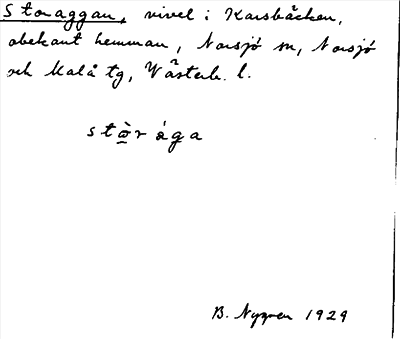 Storaggan, vivel i Karsbäcken,
obekant hemman, Norsjö sn, Norsjö
och Malå tg, Västerb. l.
stò̱r ága
B. Nygren 1929